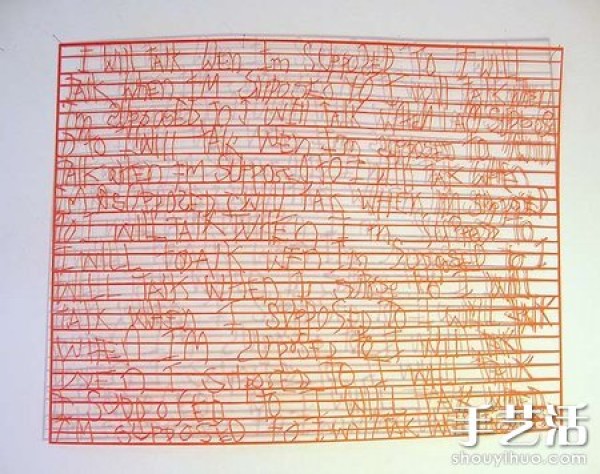 I WILL TALK WEN I'm SUPPOSED TO I WILL
TALK WHEN I'M SUPPOSED TO I WILL TALK WHEN
I'M SUPPOSED TO I WILL TALK WHEN I'M SUPPOSE
D TO I WILL TALK WEN I'm SUPPOSED TO I WILL
TALK WHEN I'M SUPPOSED TO I WILL TALK WHEN
I'M SUPPOSED I WILL TALK WHEN I'm SUPPOSED
TO I WILL TALK WHEN I'm SUPPOSED TO I
WILL TALK WEN I'm SUPPOSED TO I
WILL TALK WHEN I TO I WILL
TALK WHEN I SUPPOSED TO I WILL TALK
WHEN I'M SUPOSED TO I WILL
WEN I SUPPOSED TO I WILL TALK
TO I WILL TALK
I'M SUPPOSED TO I WILL TALK
手艺活
shouyihuo.com